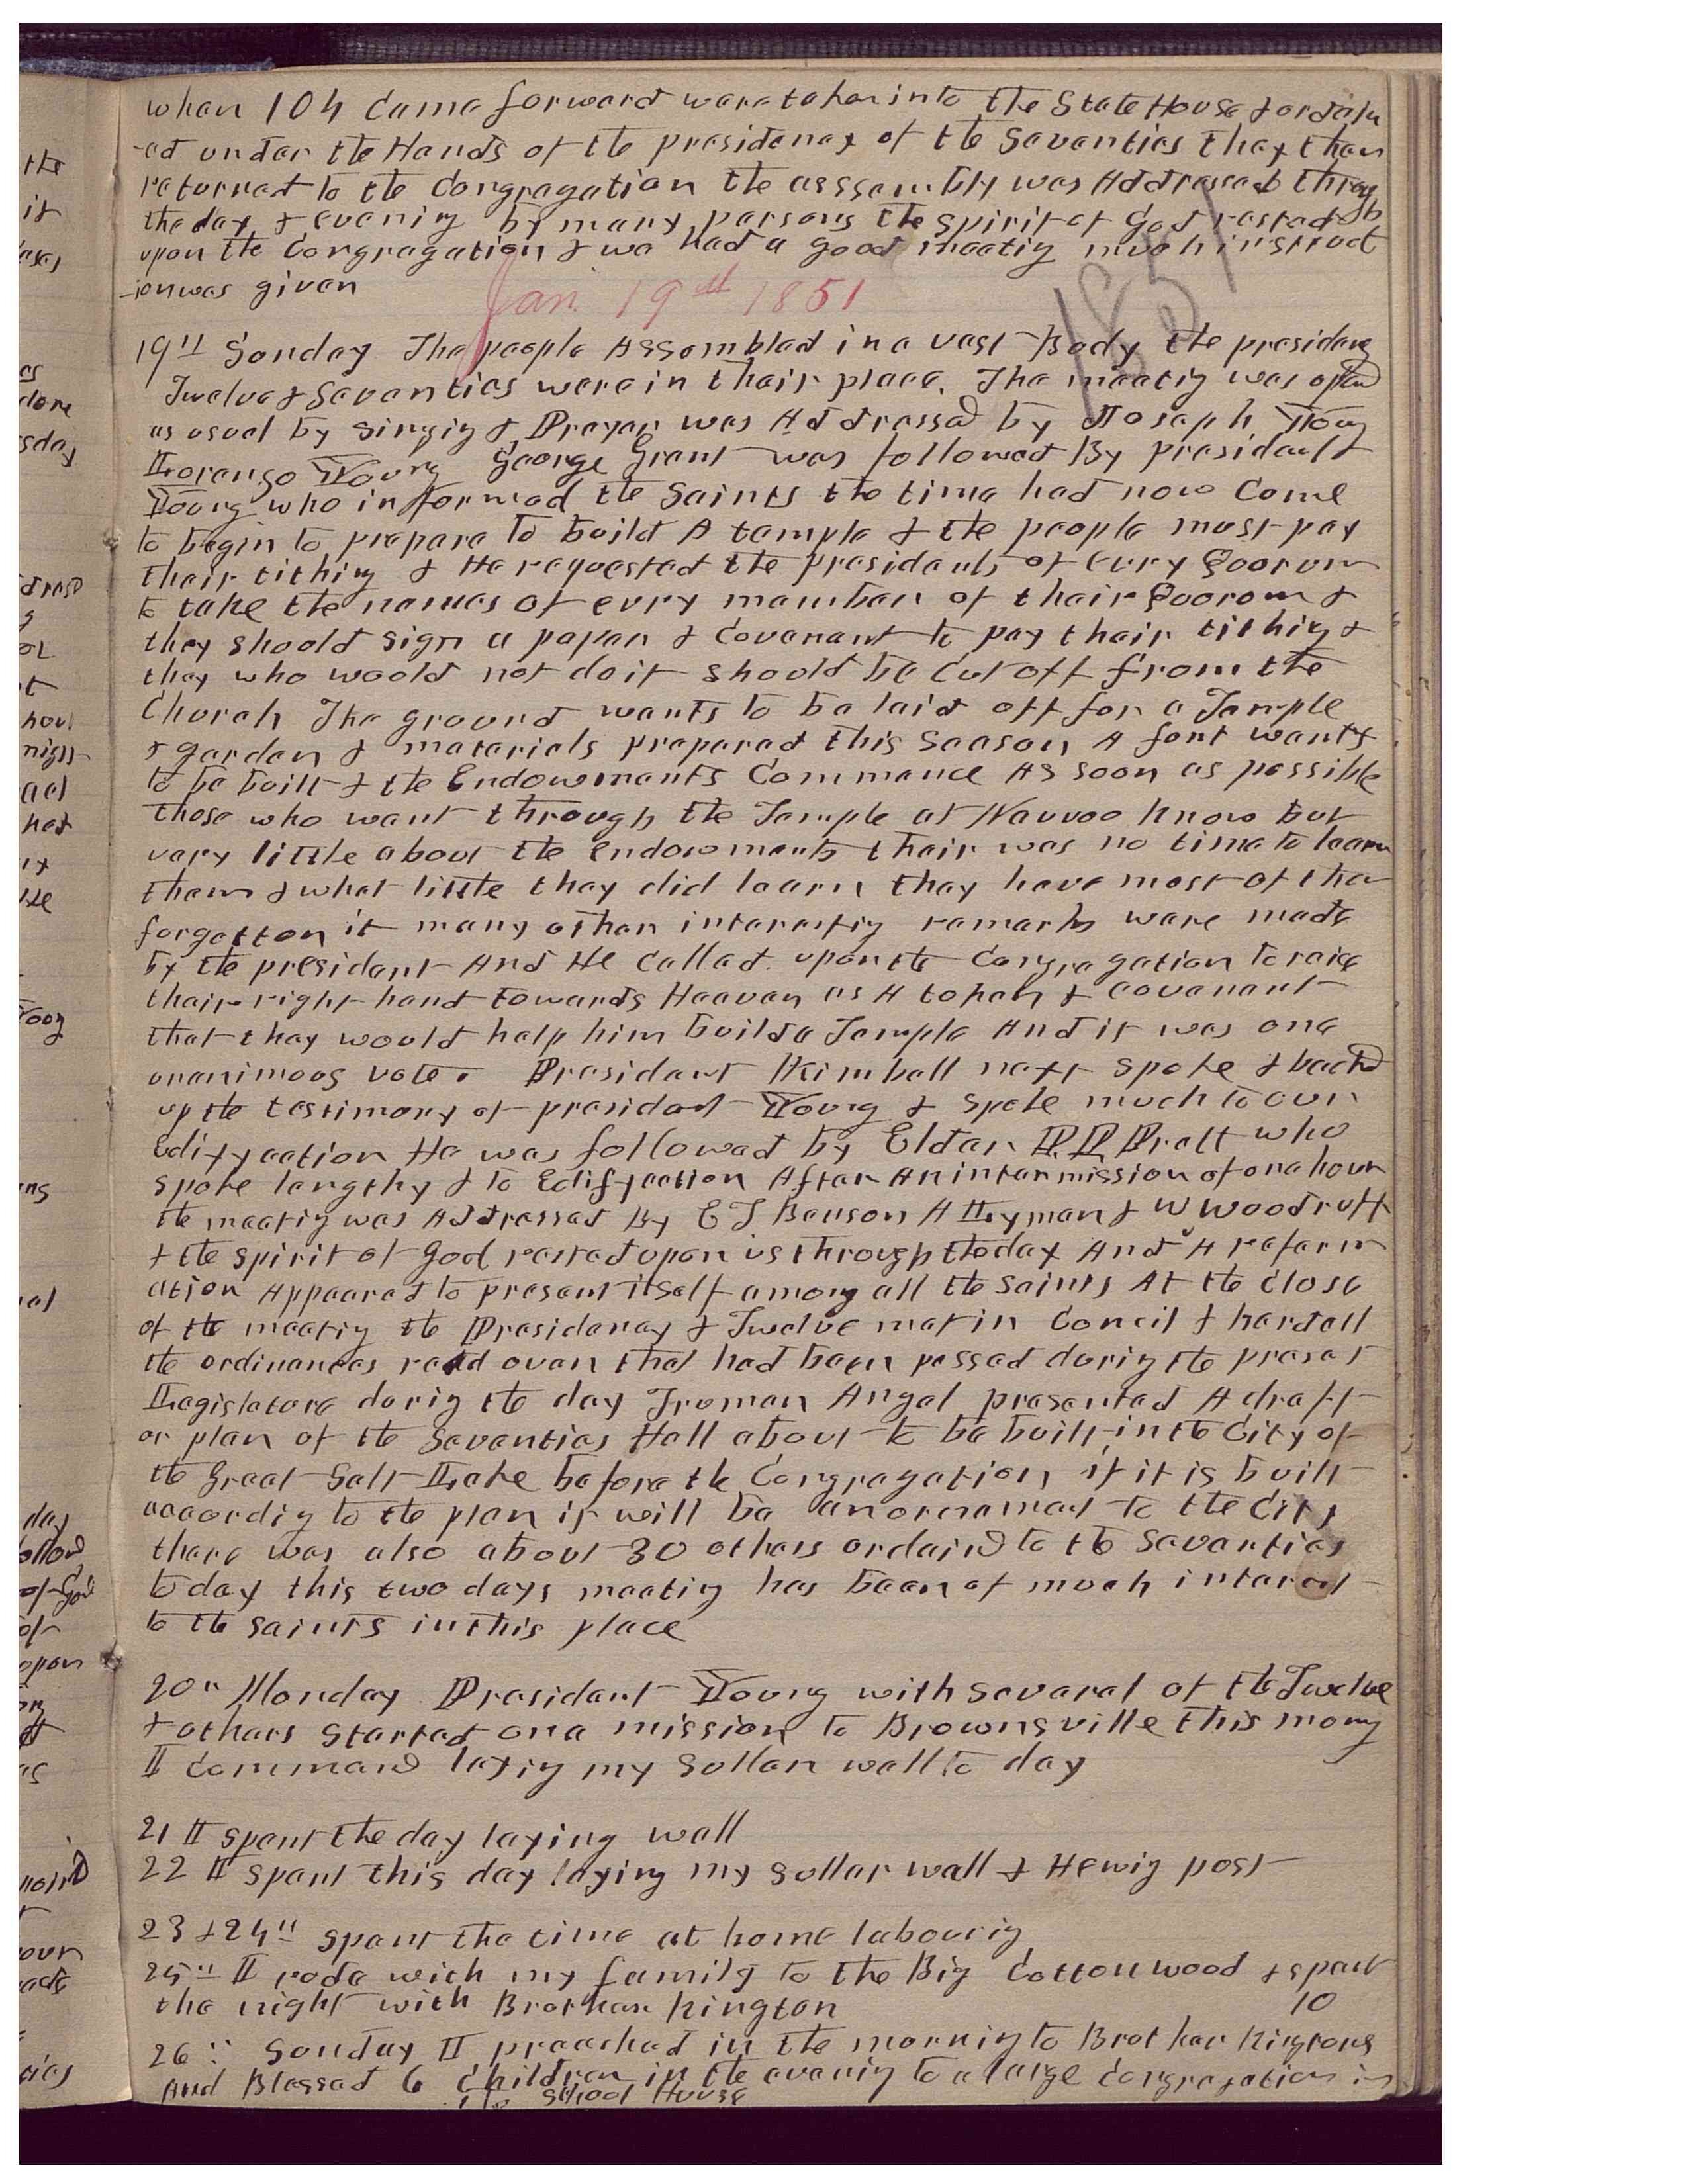 when 104 Came forward were taken into the State House & ordain
-ed under the Hands of the presidency of the Seventies they then
returned to the Congregation the asssembly was Addressed throug
h
the day & evening by many persons the spirit of God rested
upon the Congregation & we had a good meetig much instruct
-ion was given
Jan. 19th 1851
1851
19th Sunday The people Assembled in a vast Body the presidency
Twelve & Seventies were in their place. The meetig was opend
as usual by singing & Prayer was Addressed by Joseph Young
Lorenzo Young George Grant was followed By president
Young who informed the Saints the time had now Come
to begin to prepare to build A temple & the people must pay
their tithing & He requested the presidents of evry Quorum
to take the names of evry member of their Quorom &
they should sign a paper & Covenant to pay their tithing &
they who would not do it should be Cut off from the
Church The ground wants to be laid off for a Temple
& garden & materials prepared this Season A font wants
to be built & the Endowments Commence As soon as possible
those who want through the Temple at Nauvoo know but
very little about the endowments their was no time to learn
them & what little they did learn they have most of the
forgotton it many other interestig remarks were made
by the president And He Called upon the Congregation to raise
their right hand towards Heaven as A token & covenant
that they would help him build a Temple And it was one
unanimous vote. President Kimball next spoke & backed
up the testimony of president Young & spoke much to our
Edifycation He was followed by Elder P. P. Pratt who
spoke lengthy & to Edifycation After An intermission of one hour
the meetig was Addressed By E T Benson A Lyman & W Woodruff
& the spirit of God rested upon us through the day And A reform
ation Appeared to present itself among all the Saints At the Close
of the meetig the Presidency & Twelve met in Concil & heard all
the ordinances read over that had been passed durig the present
Legislature durig the day Truman Angel presented A draft
or plan of the Seventies Hall about to be built in the City of
the Great Salt Lake before the Congregation if it is built
accordig to the plan it will be an ornament to the City
there was also about 30 others ordaind to the Seventies
to day this two days meetig has been of much interest
to the saints in this place
20th Monday President Young with several of the Twelve
& others started on a mission to Brownsville this morng
I commencd layig my Sellar wall to day
21 I spent the day laying wall
22 I spent this day laying my Sellar wall & Hewig post
23 & 24th spent the time at home labourig
25th I rode with my family to the Big Cottonwood & spent
the night with Brother Kington 10
26th Sunday I preached in the mornig to Brother Kingtons
And Blessed 6 Children in the evenig to a large Congregation in
the School House